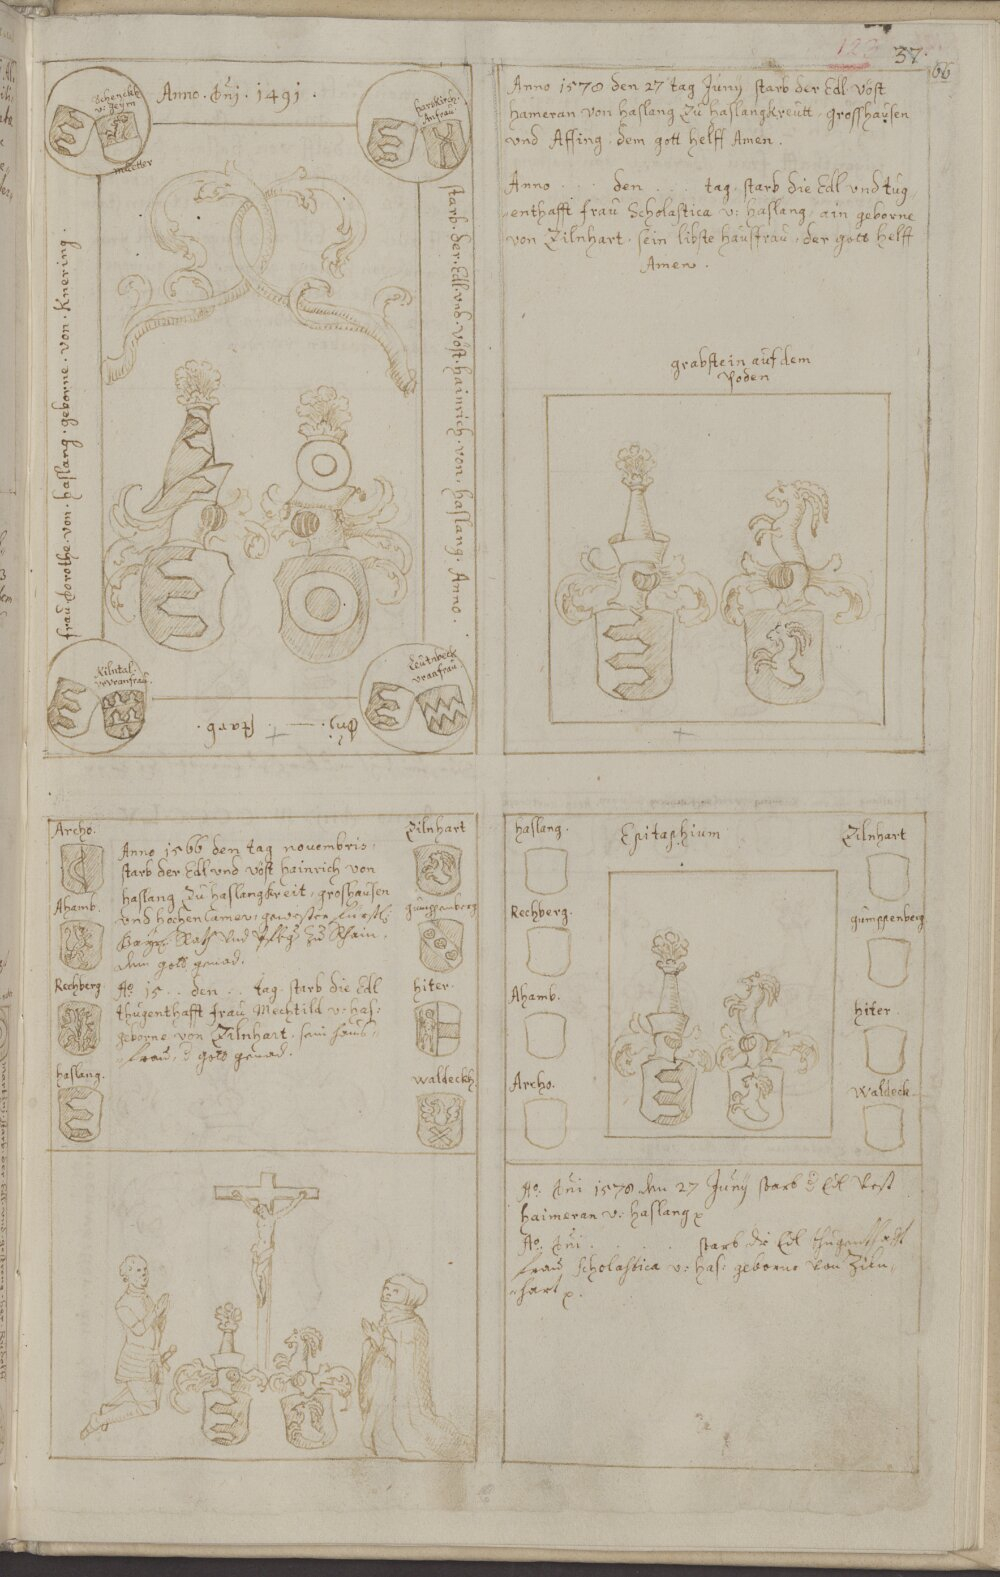 123
37.
66
Anno . dnj . 1491 .
Schenckh
v: geyrn
mutter
horskircher
Anfrau
starb . der . Edl . vnd . vöst . hainrich . von . haslang . Anno .
Leutnbeck
vranfrau
dnj . — . starb .
Kilntal .
vrvranfrau .
frau . dorothe . von . haslang . geborne . von . Knering .
Anno 1578 den 27 tag Juny starb der Edl vöst
hameran von haslang zu haslangkreutt, grosshausen
vnd Affing . dem gott helff Amen .
Anno . . . den . . . tag . starb die Edl vnd tug
enthafft frau Scholastica v: haslang, ain geborne
von Zilnhart . sein libste hausfrau, der gott helff
Amen .
grabstein auf dem
Boden
Archo.
Ahamb.
Rechberg.
haslang.
Anno 1566 den tag nouembris,
starb der Edl vnd vöst hainrich von
haslang zu haslangkreit, groshausen
vnd hochencamer, gewester fürstl:
Bayr: Rath vnd Pfleg: zu Rhain .
dem gott genad .
Ao 15 . . den . . tag . starb die Edl
thugenthafft frau Mechtild v: has:
geborne von Zilnhart . sein haus,
frau, d gott genad .
Zilnhart
gumppenberg
hiter .
waldeckh.
haslang .
Rechberg .
Ahamb.
Archo.
Epitaphium
Zilnhart
gumppenberg
hiter .
Waldeck
Ao: dni 1578 den 27 Juny starb d Edl Vest
haimeran v: haslang
Ao: dni . . . . starb die Edl thugenthafft
frau Scholastica v: has: geborne von Ziln,
hart